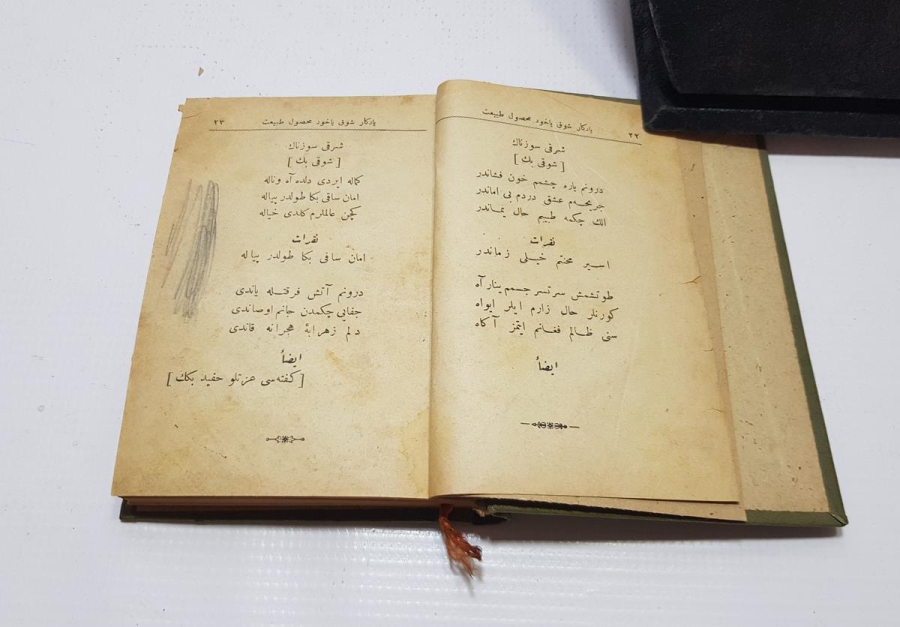 یادکار شوقی یاخود محصول طبیعت
٢٢
شرقی سوزناك
[ شوقی بك ]
درونم یاره چشمم خون فشاندر
جریحه‌م عشق دردم بی اماندر
الك چكمه طبیبم حال یماندر
نقرات
اسیر محنتم خیلی زماندر
طوتشمش سرتسر جسمم ینار آه
كورنلر حال زارم ایلر ایواه
سنی ظالم فغانم ایتمز آكاه
ایضاً
یادکار شوقی یاخود محصول طبیعت
٢٣
شرقی سوزناك
[ شوقی بك ]
كماله ایردی دلده آه وناله
امان ساقی بكا طولدر پیاله
كچن عالملرم كلدی خیاله
نقرات
امان ساقی بكا طولدر پیاله
درونم آتش فرقتله یاندی
جفایی چكمدن جانم اوصاندی
دلم زهرابهٔ هجرانه قاندی
ایضاً
[ كفته‌سی عزتلو حفید بكك ]